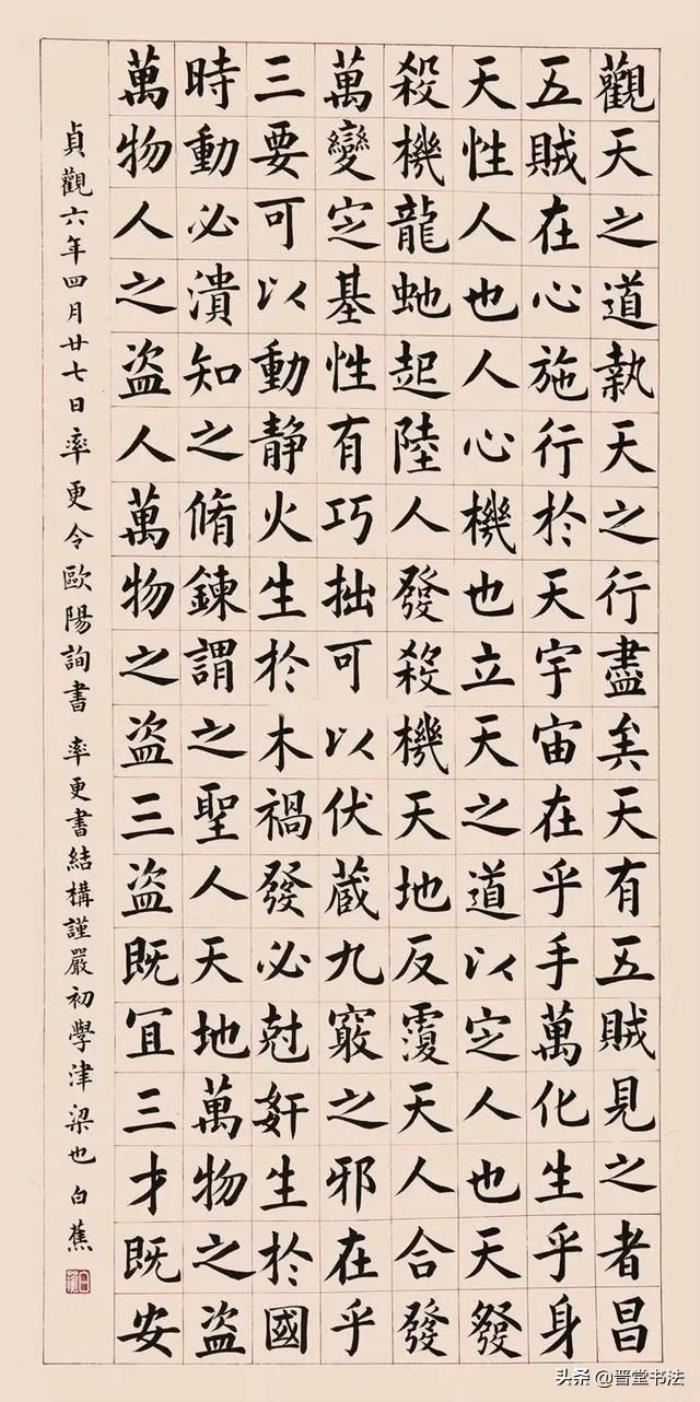 觀天之道執天之行盡矣天有五賊見之者昌
五賊在心施行於天宇宙在乎手萬化生乎身
天性人也人心機也立天之道以定人也天發
殺機龍虵起陸人發殺機天地反覆天人合發
萬變定基性有巧拙可以伏蔵九竅之邪在乎
三要可以動静火生於木禍發必尅奸生於國
時動必潰知之脩鍊謂之聖人天地萬物之盗
萬物人之盗人萬物之盗三盗既宜三才既安
貞觀六年四月廿七日率更令歐陽詢書 率更書結構謹嚴初學津梁也 白蕉
头条 @晋堂书法